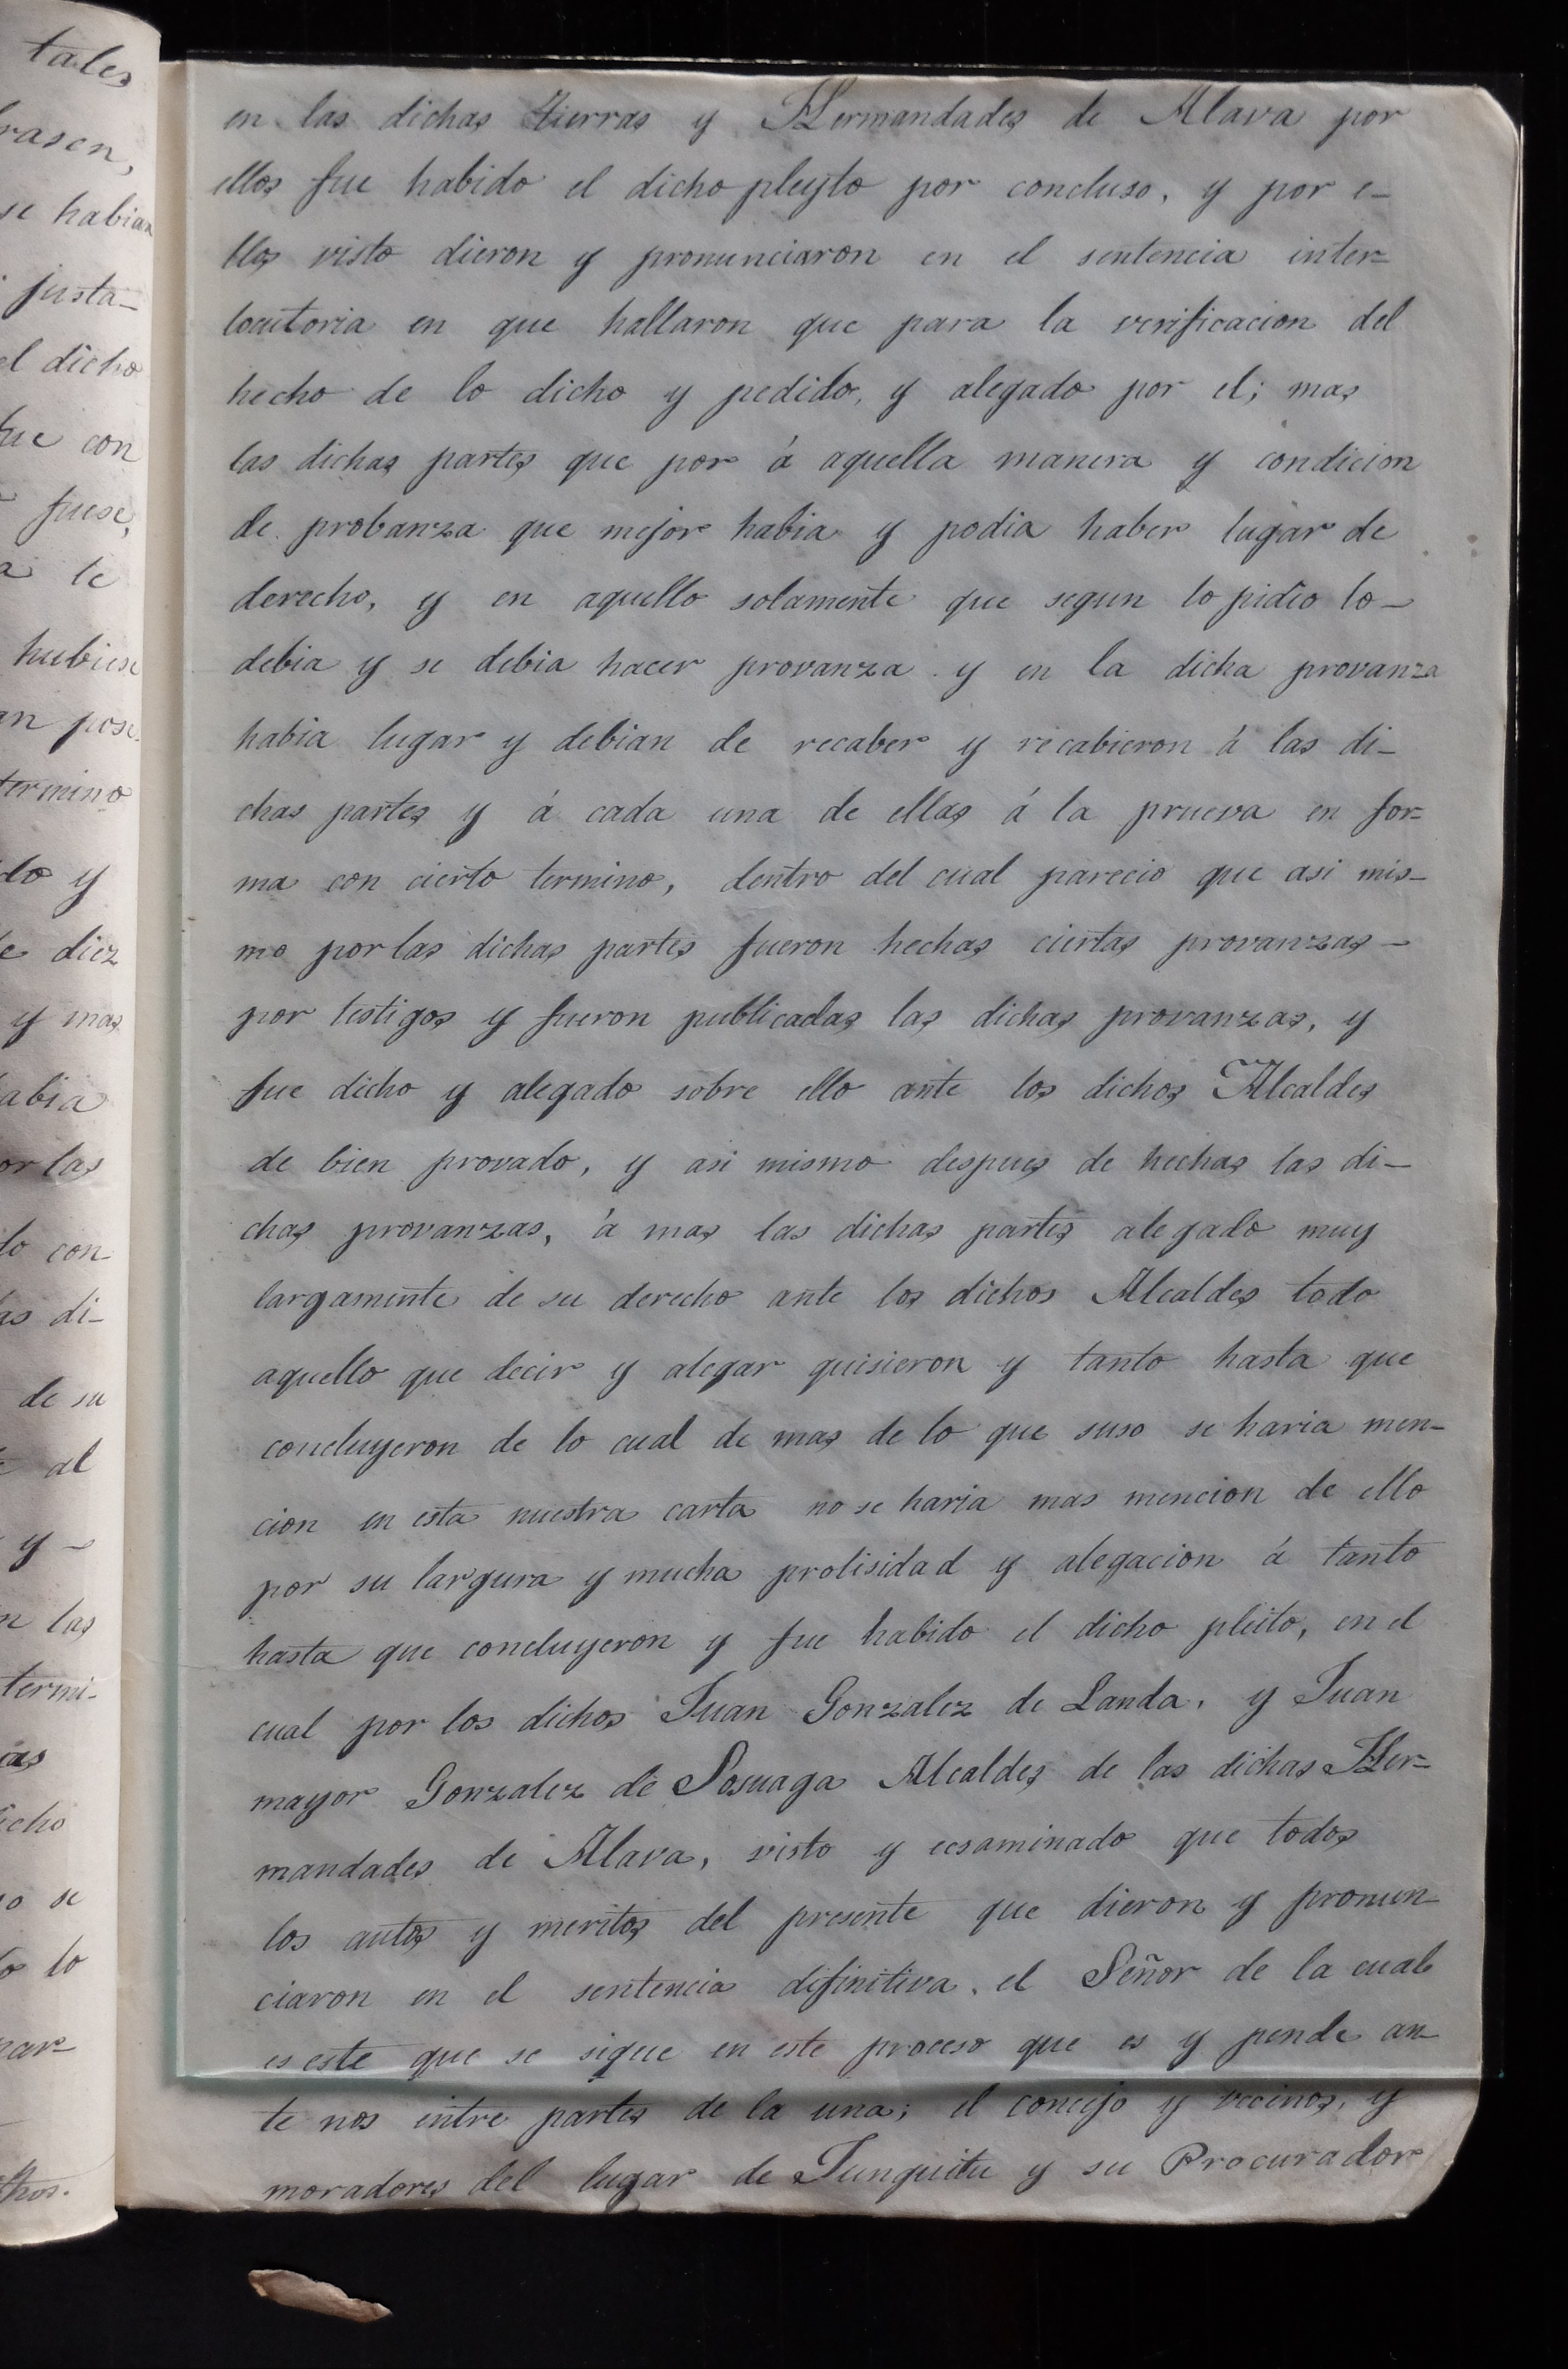 tales
rasen,
se habian
justa-
el dicho
fue con
fuese,
a le
hubiese
an pose-
termino
do y
e diez
y mas
abia
or las
lo con-
as di-
de su
al
y -
n las
termi-
cas
icho
o se
lo
par-
en las dichas tierras y Hermandades de Alava por
ellos fue habido el dicho pleyto por concluso, y por e-
llos visto dieron y pronunciaron en el sentencia inter-
locutoria en que hallaron que para la verificacion del
hecho de lo dicho y pedido, y alegado por el; mas
las dichas partes que por á aquella manera y condicion
de probanza que mejor habia y podia haber lugar de
derecho, y en aquello solamente que segun lo pidio lo-
debia y se debia hacer provanza y en la dicha provanza
habia lugar y debian de recaber y recabieron á las di-
chas partes y á cada una de ellas á la prueva en for-
ma con cierto termino, dentro del cual parecio que asi mis-
mo por las dichas partes fueron hechas ciertas provanzas-
por testigos y fueron publicadas las dichas provanzas, y
fue dicho y alegado sobre ello ante los dichos Alcaldes
de bien provado, y asi mismo despues de hechas las di-
chas provanzas, á mas las dichas partes alegado muy
largamente de su derecho ante los dichos Alcaldes todo
aquello que decir y alegar quisieron y tanto hasta que
concluyeron de lo cual de mas de lo que suso se haria men-
cion en esta nuestra carta no se haria mas mencion de ello
por su largura y mucha prolisidad y alegacion á tanto
hasta que concluyeron y fue habido el dicho pleito, en el
cual por los dichos Juan Gonzalez de Landa, y Juan
mayor Gonzalez de Sosuaga Alcaldes de las dichas Her-
mandades de Alava, visto y ecsaminado que todos
los autos y meritos del presente que dieron y pronun-
ciaron en el sentencia difinitiva, el Señor de la cual
es este que se sigue en este proceso que es y pende an-
te nos entre partes de la una; el concejo y vecinos, y
moradores del lugar de Junguitu y su Procurador